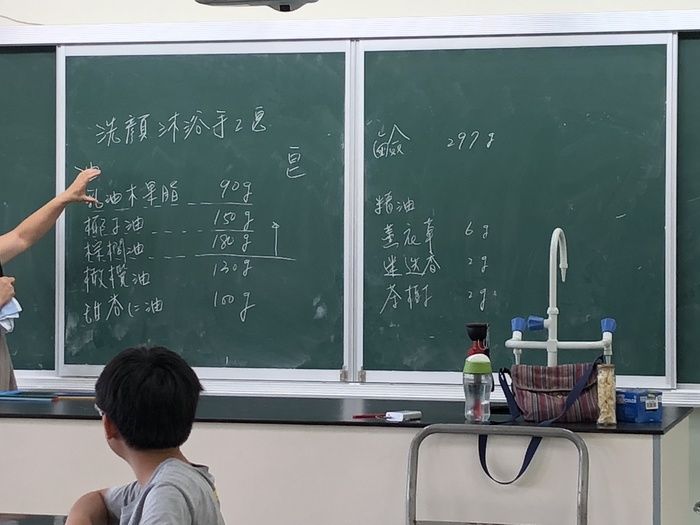 洗顏沐浴手工皂
皂
油
乳油木果脂 90g
椰子油 150g
棕櫚油 180g
橄欖油 120g
甜杏仁油 100g
鹼 297g
精油
薰衣草 6g
迷迭香 2g
茶樹 2g